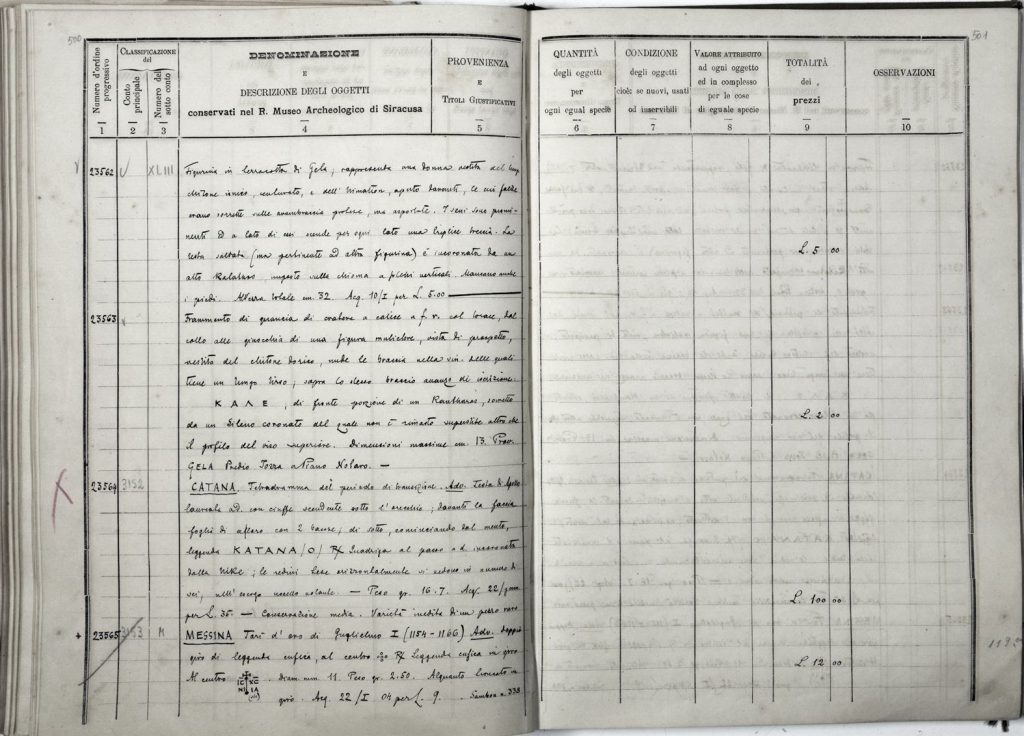 500
Numero d'ordine progressivo
CLASSIFICAZIONE del
Conto principale
Numero del sotto conto
DENOMINAZIONE
E
DESCRIZIONE DEGLI OGGETTI
conservati nel R. Museo Archeologico di Siracusa
PROVENIENZA
E
TITOLI GIUSTIFICATIVI
1 2 3 4 5
23562 XLIII Figurina in terracotta di Gela, rappresenta una donna vestita del lungo
chitone ionico, e dell' himation, aperto davanti, le cui falde
erano sorrette sulle avambraccia protese, ma asportate. I seni sono promi-
nenti e a lato di essi scende per ogni lato una triplice treccia. La
testa saltata (ma pertinente ad altra figurina) è incoronata da un
alto Kalathos imposto sulla chioma a filetti verticali. Mancano anche
i piedi. Altezza totale cm. 32. Acq. 10/I per L. 5.00
23563 Frammento di grancia di cratere a calice a f. r. col torace, dal
collo alle ginocchia di una figura muliebre, vista di prospetto,
vestita del chitone dorico, nude le braccia nella sin. delle quali
tiene un lungo tirso; sopra lo stesso braccio avanzo di iscrizione.
ΚΑΛΕ, di fronte porzione di un Kantharos, sorretto
da un Sileno coronato del quale non è rimasto superstite altro che
il profilo del viso superiore. Dimensioni massime cm. 13. Prov.
GELA Predio Iozza a Piano Notaro. —
23564 3152 CATANA. Tetradramma del periodo di transizione. Adv. Testa di Apollo
laureata ad. con ciuffo scendente sotto l'orecchio; davanti la faccia
foglia di alloro con 2 bacche; di sotto, cominciando dal mento,
leggenda KATANA/O/ R/ Quadriga al passo a d. incoronata
dalla Nike; le redini tese orizzontalmente si vedono in numero di
sei, nell'esergo uccello volante. — Peso gr. 16.7. Acq. 22/genn
per L. 35 — Conservazione media. Varietà inedita di un pezzo raro
+ 23565 3153 M MESSINA Tarì d'oro di Guglielmo I (1154-1166) Adv. doppio
giro di leggenda cufica, al centro R/ Leggenda cufica in giro
Al centro IC XC NI IA diam. mm 11. Peso gr. 2.50. Alquanto tronco in
giro. Acq. 22/I 04 per L. 9. Sambon n. 338
501
QUANTITÀ
degli oggetti
per
ogni egual specie
CONDIZIONE
degli oggetti
cioè: se nuovi, usati
od inservibili
VALORE ATTRIBUITO
ad ogni oggetto
ed in complesso
per le cose
di eguale specie
TOTALITÀ
dei
prezzi
OSSERVAZIONI
6 7 8 9 10
L. 5 00
L. 2 00
L. 100 00
L. 12 00